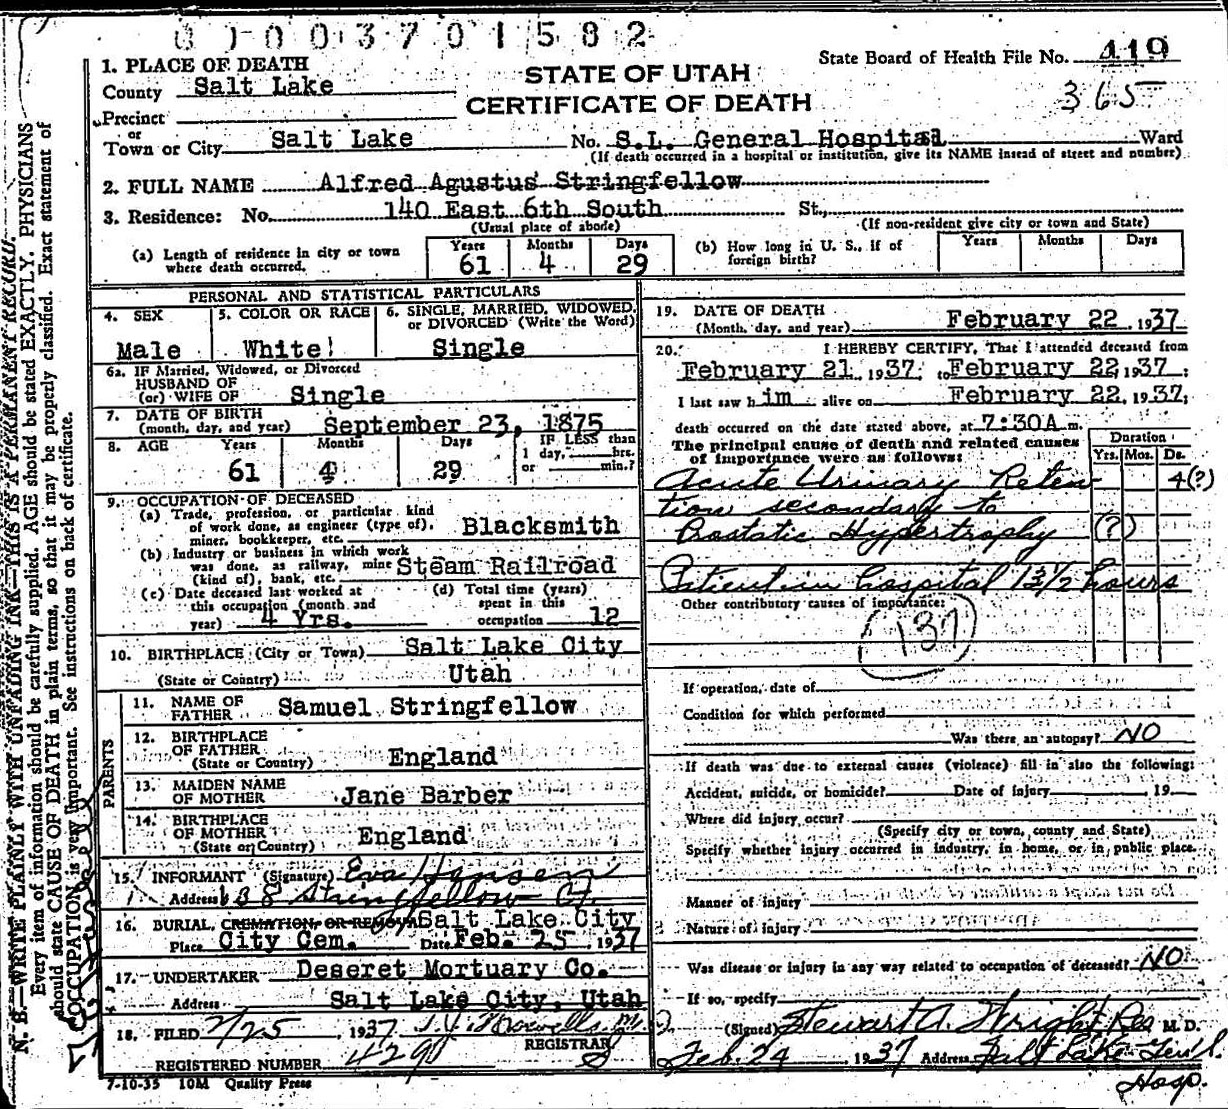 0 1 0 0 3 7 0 1 5 8 2
State Board of Health File No. 419
365
STATE OF UTAH
CERTIFICATE OF DEATH
1. PLACE OF DEATH
County Salt Lake
Precinct
or
Town or City Salt Lake No. S.L. General Hospital Ward
(If death occurred in a hospital or institution, give its NAME insead of street and number)
2. FULL NAME Alfred Agustus Stringfellow
3. Residence: No. 140 East 6th South St.,
(Usual place of abode) (If non-resident give city or town and State)
(a) Length of residence in city or town where death occurred. Years 61 Months 4 Days 29
(b) How long in U. S., if of foreign birth? Years Months Days
PERSONAL AND STATISTICAL PARTICULARS
4. SEX 5. COLOR OR RACE 6. SINGLE, MARRIED, WIDOWED, or DIVORCED (Write the Word)
Male White Single
6a. IF Married, Widowed, or Divorced
HUSBAND OF
(or) WIFE OF Single
7. DATE OF BIRTH
(month, day, and year) September 23, 1875
8. AGE Years Months Days IF LESS than
1 day, hrs.
or min.?
61 4 29
9. OCCUPATION OF DECEASED
(a) Trade, profession, or particular kind
of work done, as engineer (type of),
miner, bookkeeper, etc. Blacksmith
(b) Industry or business in which work
was done, as railway, mine
(kind of), bank, etc. Steam Railroad
(c) Date deceased last worked at
this occupation (month and
year) 4 Yrs.
(d) Total time (years)
spent in this
occupation 12
10. BIRTHPLACE (City or Town) Salt Lake City
(State or Country) Utah
PARENTS
11. NAME OF
FATHER Samuel Stringfellow
12. BIRTHPLACE
OF FATHER
(State or Country) England
13. MAIDEN NAME
OF MOTHER Jane Barber
14. BIRTHPLACE
OF MOTHER
(State or Country) England
15. INFORMANT (Signature) Eva Hansen
Address Stringfellow Ct.
16. BURIAL, CREMATION OR REMOVAL Salt Lake City
Place City Cem. Date Feb. 25 1937
17. UNDERTAKER Deseret Mortuary Co.
Address Salt Lake City, Utah
18. FILED 2/25 1937
REGISTRAR
REGISTERED NUMBER
7-10-35 10M Quality Press
19. DATE OF DEATH
(Month, day, and year) February 22, 1937
20. I HEREBY CERTIFY, That I attended deceased from
February 21, 1937, to February 22, 1937;
I last saw him alive on February 22, 1937;
death occurred on the date stated above, at 7:30A m.
The principal cause of death and related causes
of importance were as follows:
Duration
Yrs. Mos. Ds.
Acute Urinary Reten- 4(?)
tion secondary to
Prostatic Hypertrophy (?)
Patient in hospital 13 1/2 hours
Other contributory causes of importance:
137
If operation, date of
Condition for which performed
Was there an autopsy? NO
If death was due to external causes (violence) fill in also the following:
Accident, suicide, or homicide? Date of injury 19
Where did injury occur?
(Specify city or town, county and State)
Specify whether injury occurred in industry, in home, or in public place.
Manner of injury
Nature of injury
Was disease or injury in any way related to occupation of deceased? NO
If so, specify
(Signed) Stewart A. Wright Res M. D.
Feb. 24 1937 Address Salt Lake Gen'l.
Hosp.
N. B.—WRITE PLAINLY WITH UNFADING INK—THIS IS A PERMANENT RECORD.
Every item of information should be carefully supplied. AGE should be stated EXACTLY. PHYSICIANS
should state CAUSE OF DEATH in plain terms, so that it may be properly classified. Exact statement of
OCCUPATION is very important. See instructions on back of certificate.